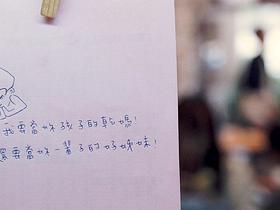 我要當妳孩子的乾媽!
還要當妳一輩子的好姊妹!